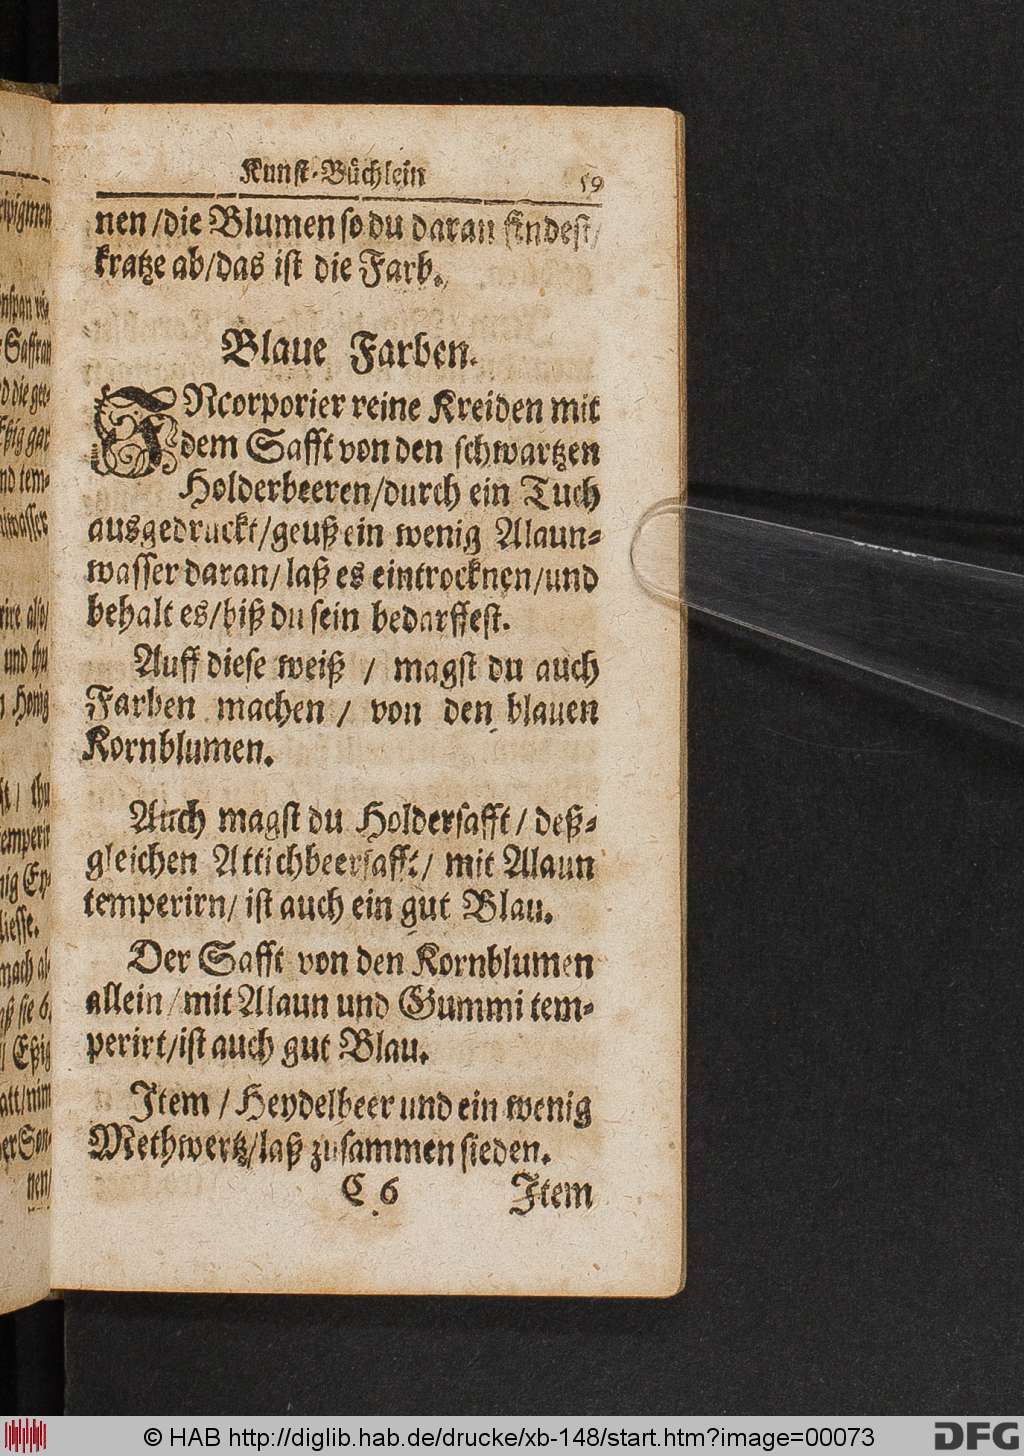 Kunst-Büchlein 59
nen/die Blumen so du daran findest/
kratze ab/das ist die Farb.
Blaue Farben.
INcorporier reine Kreiden mit
dem Safft von den schwartzen
Holderbeeren/durch ein Tuch
ausgedruckt/geuß ein wenig Alaun-
wasser daran/laß es eintrocknen/und
behalt es/biß du sein bedarffest.
Auff diese weiß / magst du auch
Farben machen / von den blauen
Kornblumen.
Auch magst du Holdersafft / deß-
gleichen Attichbeersafft/ mit Alaun
temperirn/ ist auch ein gut Blau.
Der Safft von den Kornblumen
allein/mit Alaun und Gummi tem-
perirt/ist auch gut Blau.
Item / Heydelbeer und ein wenig
Methwertz/laß zusammen sieden.
C 6 Item
© HAB http://diglib.hab.de/drucke/xb-148/start.htm?image=00073
DFG